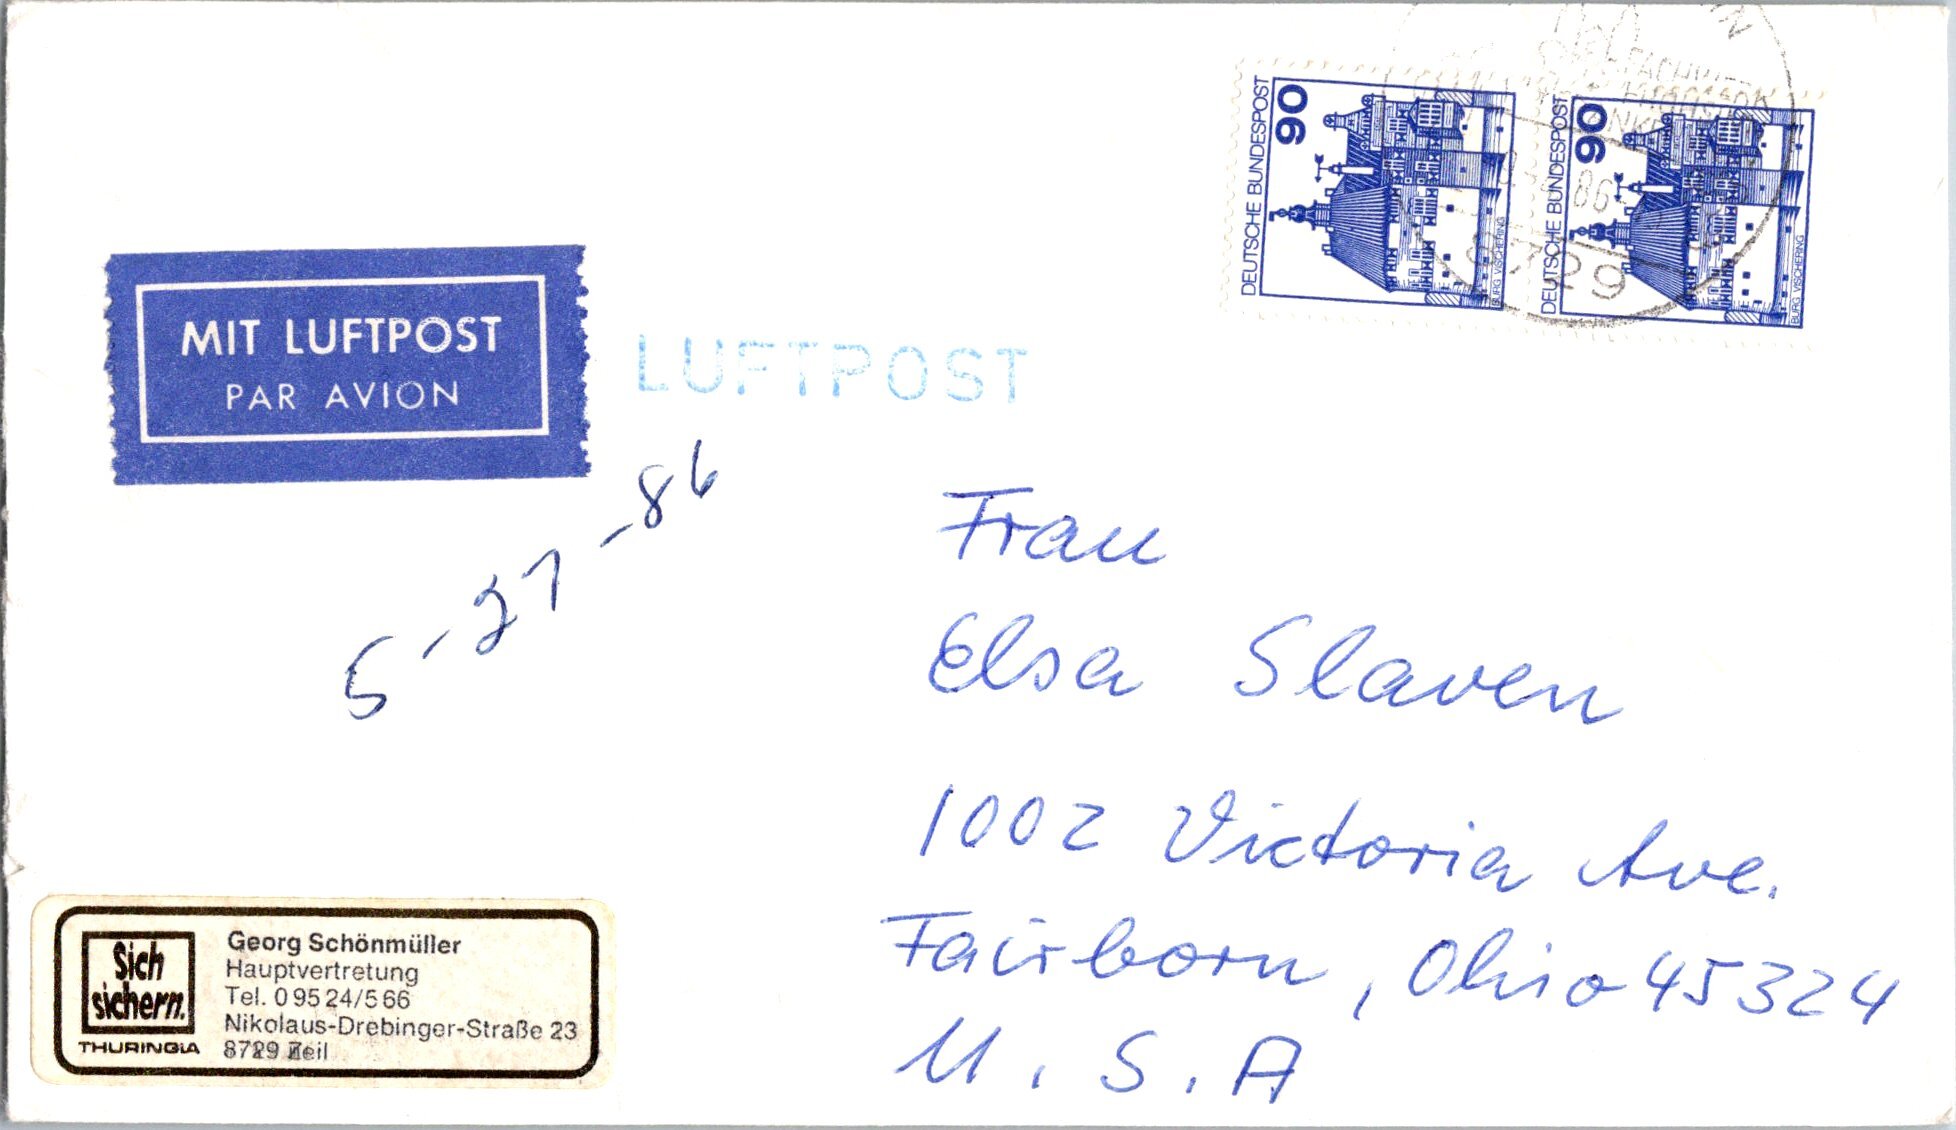 DEUTSCHE BUNDESPOST
90
BURG VISCHERING
DEUTSCHE BUNDESPOST
90
BURG VISCHERING
86
8729
MIT LUFTPOST
PAR AVION
LUFTPOST
5-27-86
Frau
Elsa Slaven
1002 Victoria Ave.
Fairborn, Ohio 45324
U.S.A
Sich
sichern.
THURINGIA
Georg Schönmüller
Hauptvertretung
Tel. 09524/566
Nikolaus-Drebinger-Straße 23
8729 Zeil